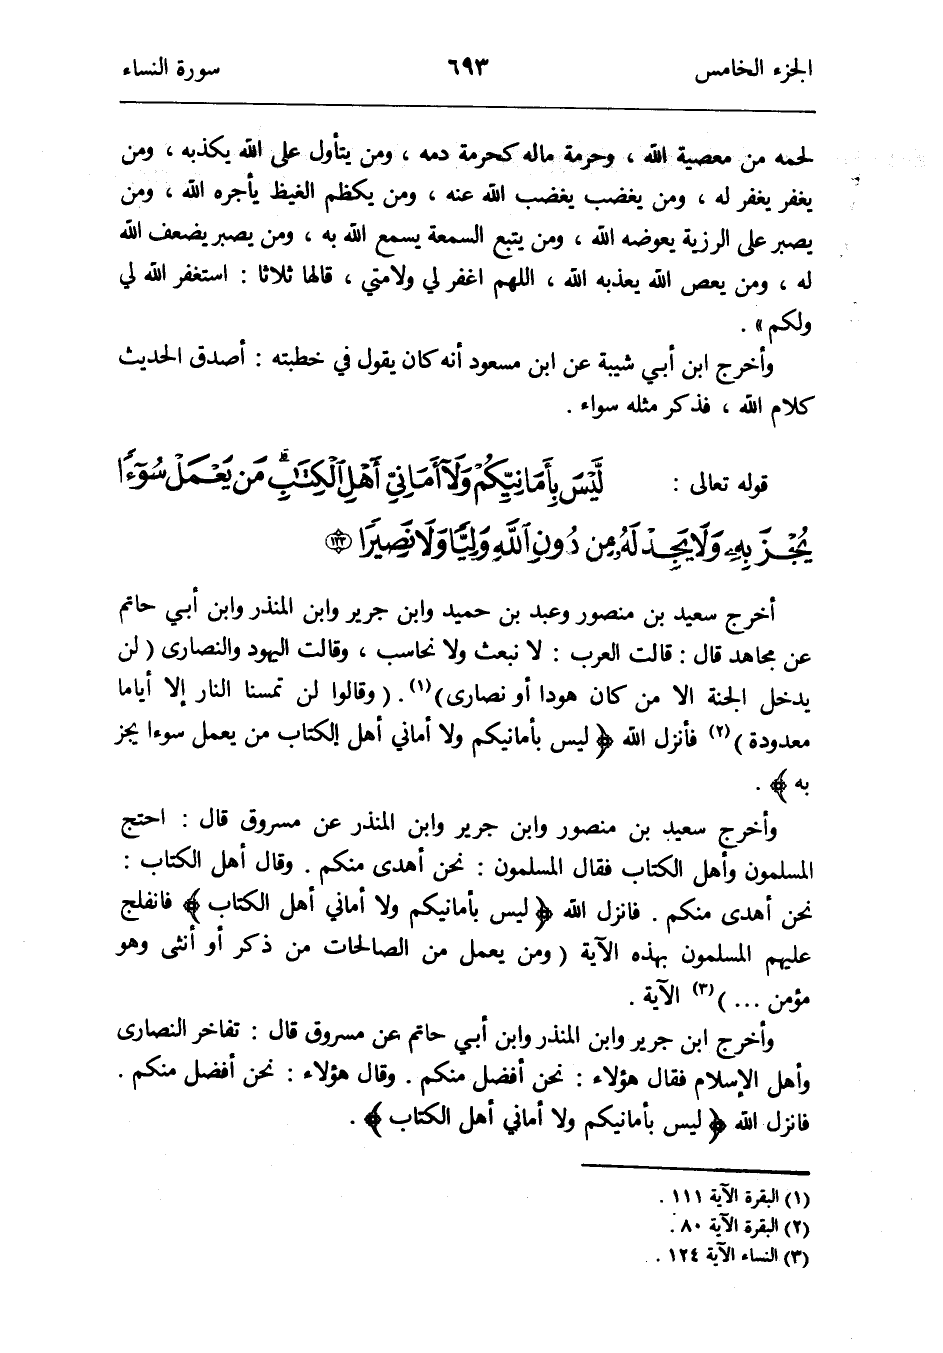 الجزء الخامس ٦٩٣ سورة النساء
لحمه من معصية الله ، وحرمة ماله كحرمة دمه ، ومن يتأول على الله يكذبه ، ومن
يغفر يغفر له ، ومن يغضب يغضب الله عنه ، ومن يكظم الغيظ يأجره الله ، ومن
يصبر على الرزية يعوضه الله ، ومن يتبع السمعة يسمع الله به ، ومن يصبر يضعف الله
له ، ومن يعص الله يعذبه الله ، اللهم اغفر لي ولامتي ، قالها ثلاثا : استغفر الله لي
ولكم » .
وأخرج ابن أبي شيبة عن ابن مسعود أنه كان يقول في خطبته : أصدق الحديث
كلام الله ، فذكر مثله سواء .
قوله تعالى : لَّيْسَ بِأَمَانِيِّكُمْ وَلَآ أَمَانِيِّ أَهْلِ ٱلْكِتَٰبِ ۗ مَن يَعْمَلْ سُوٓءًا
يُجْزَ بِهِۦ وَلَا يَجِدْ لَهُۥ مِن دُونِ ٱللَّهِ وَلِيًّا وَلَا نَصِيرًا ١٢٣
أخرج سعيد بن منصور وعبد بن حميد وابن جرير وابن المنذر وابن أبي حاتم
عن مجاهد قال : قالت العرب : لا نبعث ولا نحاسب ، وقالت اليهود والنصارى ( لن
يدخل الجنة الا من كان هودا أو نصارى)(١) . ( وقالوا لن تمسنا النار إلا أياما
معدودة )(٢) فأنزل الله ﴿ ليس بأمانيكم ولا أماني أهل الكتاب من يعمل سوءا يجز
به ﴾ .
وأخرج سعيد بن منصور وابن جرير وابن المنذر عن مسروق قال : احتج
المسلمون وأهل الكتاب فقال المسلمون : نحن أهدى منكم . وقال أهل الكتاب :
نحن أهدى منكم . فانزل الله ﴿ ليس بأمانيكم ولا أماني أهل الكتاب ﴾ فانفلج
عليهم المسلمون بهذه الآية ( ومن يعمل من الصالحات من ذكر أو أنثى وهو
مؤمن ... )(٣) الآية .
وأخرج ابن جرير وابن المنذر وابن أبي حاتم عن مسروق قال : تفاخر النصارى
وأهل الإسلام فقال هؤلاء : نحن أفضل منكم . وقال هؤلاء : نحن أفضل منكم .
فانزل الله ﴿ ليس بأمانيكم ولا أماني أهل الكتاب ﴾ .
(١) البقرة الآية ١١١ .
(٢) البقرة الآية ٨٠ .
(٣) النساء الآية ١٢٤ .